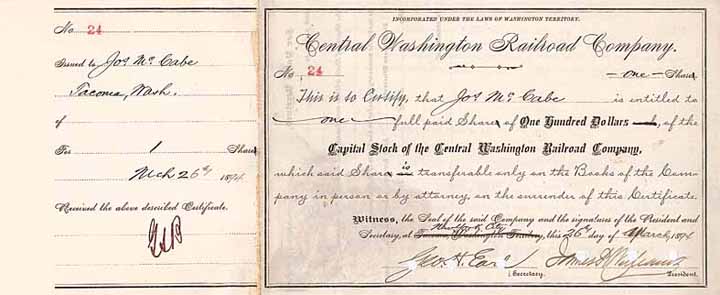 No. 24
Issued to Jos Mc Cabe
Tacoma, Wash.
of
For 1 Share
Mch 26th 1894
Received the above described Certificate.
INCORPORATED UNDER THE LAWS OF WASHINGTON TERRITORY.
Central Washington Railroad Company.
No. 24 one Share
This is to Certify, that Jos Mc Cabe is entitled to
one full paid Share of One Hundred Dollars each, of the
Capital Stock of the Central Washington Railroad Company,
which said Share is transferable only on the Books of the Com-
pany in person or by attorney, on the surrender of this Certificate.
Witness, the Seal of the said Company and the signatures of the President and
New York City
Secretary, at Tacoma, Washington Territory, this 26th day of March, 1894
Geo. H. Earl
Secretary. President.